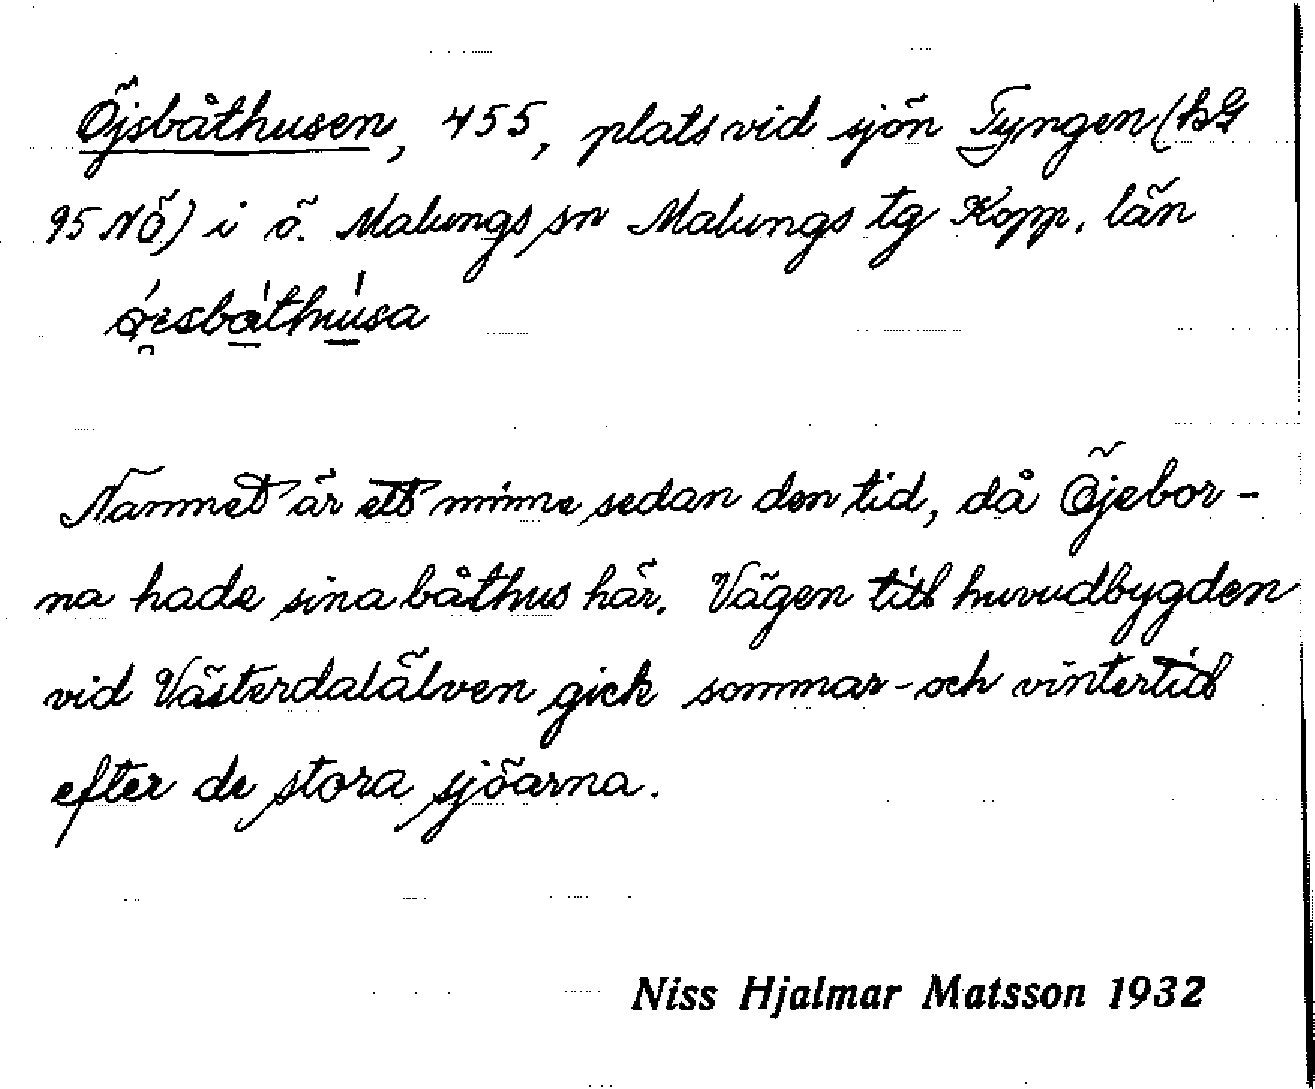 Öjsbåthusen, 455, plats vid sjön Tyngen (kG
95 NÖ) i ö. Malungs sn Malungs tg Kopp. län
Namnet är ett minne sedan den tid, då Öjebor-
na hade sina båthus här. Vägen till huvudbygden
vid Västerdalälven gick sommar- och vintertid
efter de stora sjöarna.
Niss Hjalmar Matsson 1932